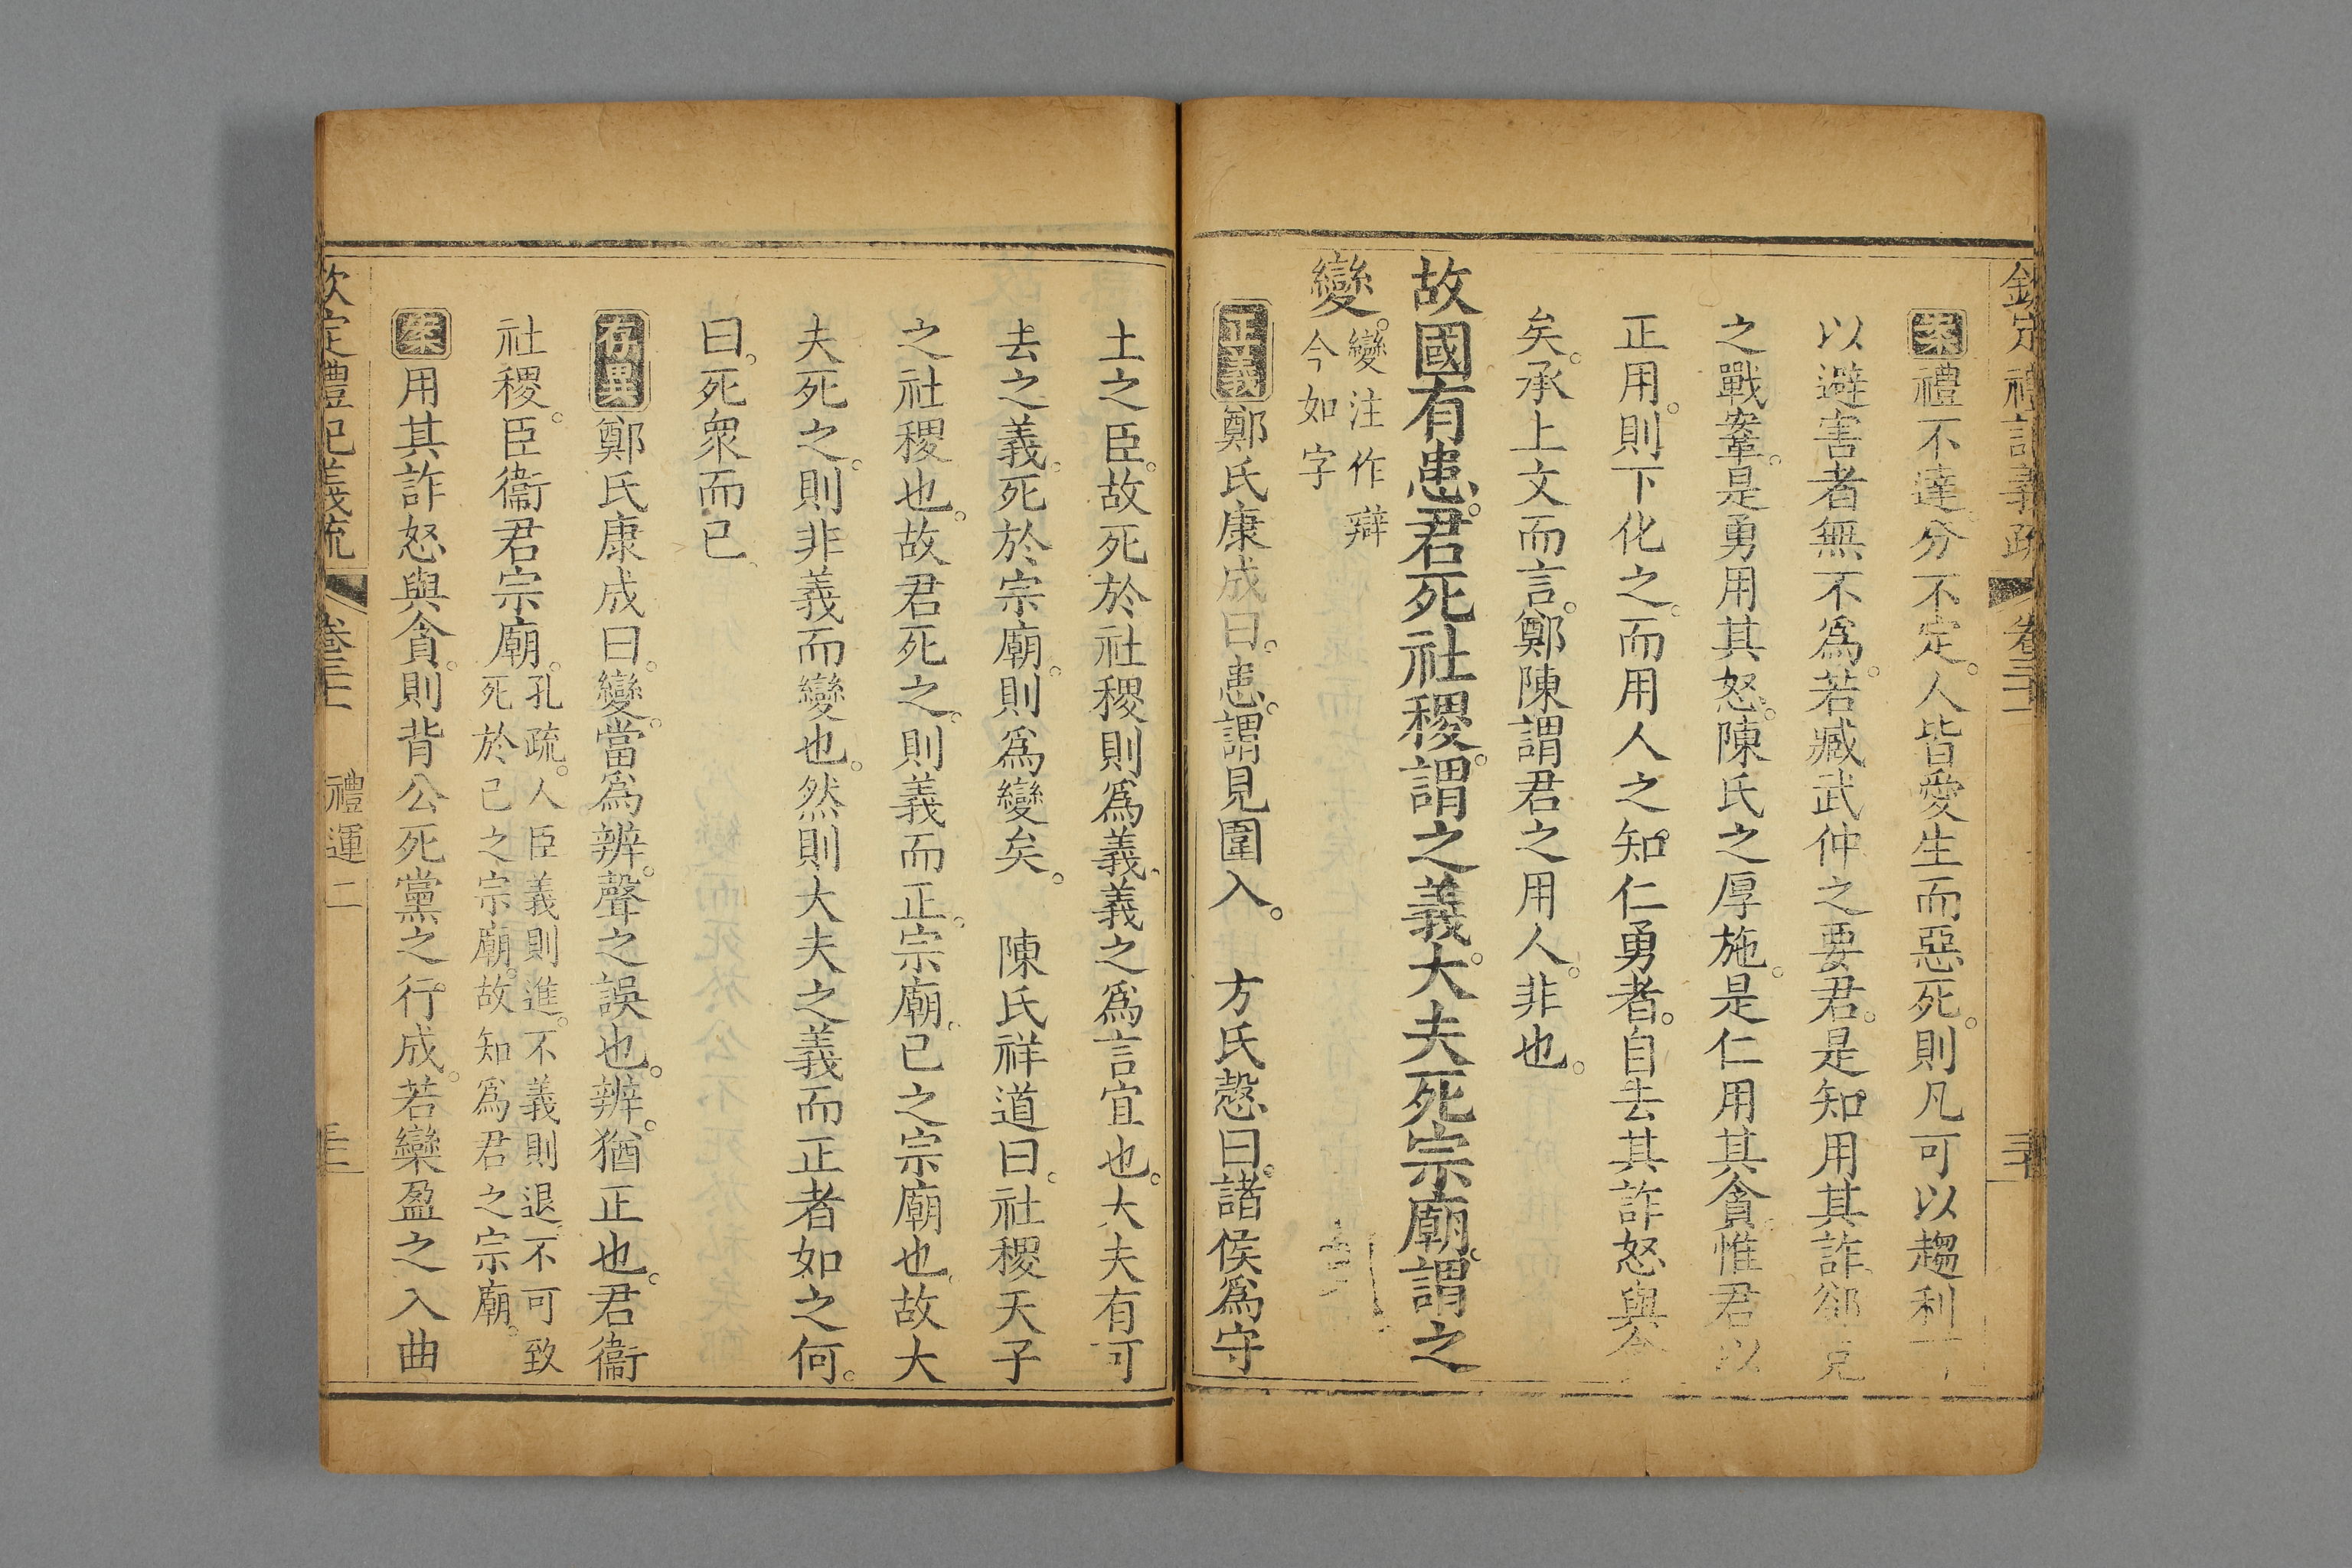 欽定禮記義疏 卷三十一
案禮不達。分不定。人皆愛生而惡死。則凡可以趨利
以避害者無不爲。若臧武仲之要君。是知用其詐。郤克
之戰鞌。是勇用其怒。陳氏之厚施。是仁用其貪。惟君以
正用。則下化之。而用人之知。仁勇者。自去其詐怒與貪
矣。承上文而言。鄭陳謂君之用人。非也。
故國有患。君死社稷。謂之義。大夫死宗廟。謂之
變。變注作辯
今如字
正義鄭氏康成曰。患。謂見圍入。 方氏慤曰。諸侯爲守
土之臣。故死於社稷則爲義。義之爲言宜也。大夫有可
去之義。死於宗廟。則爲變矣。 陳氏祥道曰。社稷天子
之社稷也。故君死之。則義而正。宗廟。已之宗廟也。故大
夫死之。則非義而變也。然則大夫之義而正者如之何。
曰。死衆而已。
存異鄭氏康成曰。變。當爲辨。聲之誤也。辨。猶正也。君衞
社稷。臣衞君宗廟。孔疏。人臣義則進。不義則退。不可致
死於已之宗廟。故知爲君之宗廟。
案用其詐怒與貪。則背公死黨之行成。若欒盈之入曲
欽定禮記義疏 卷三十一 禮運二